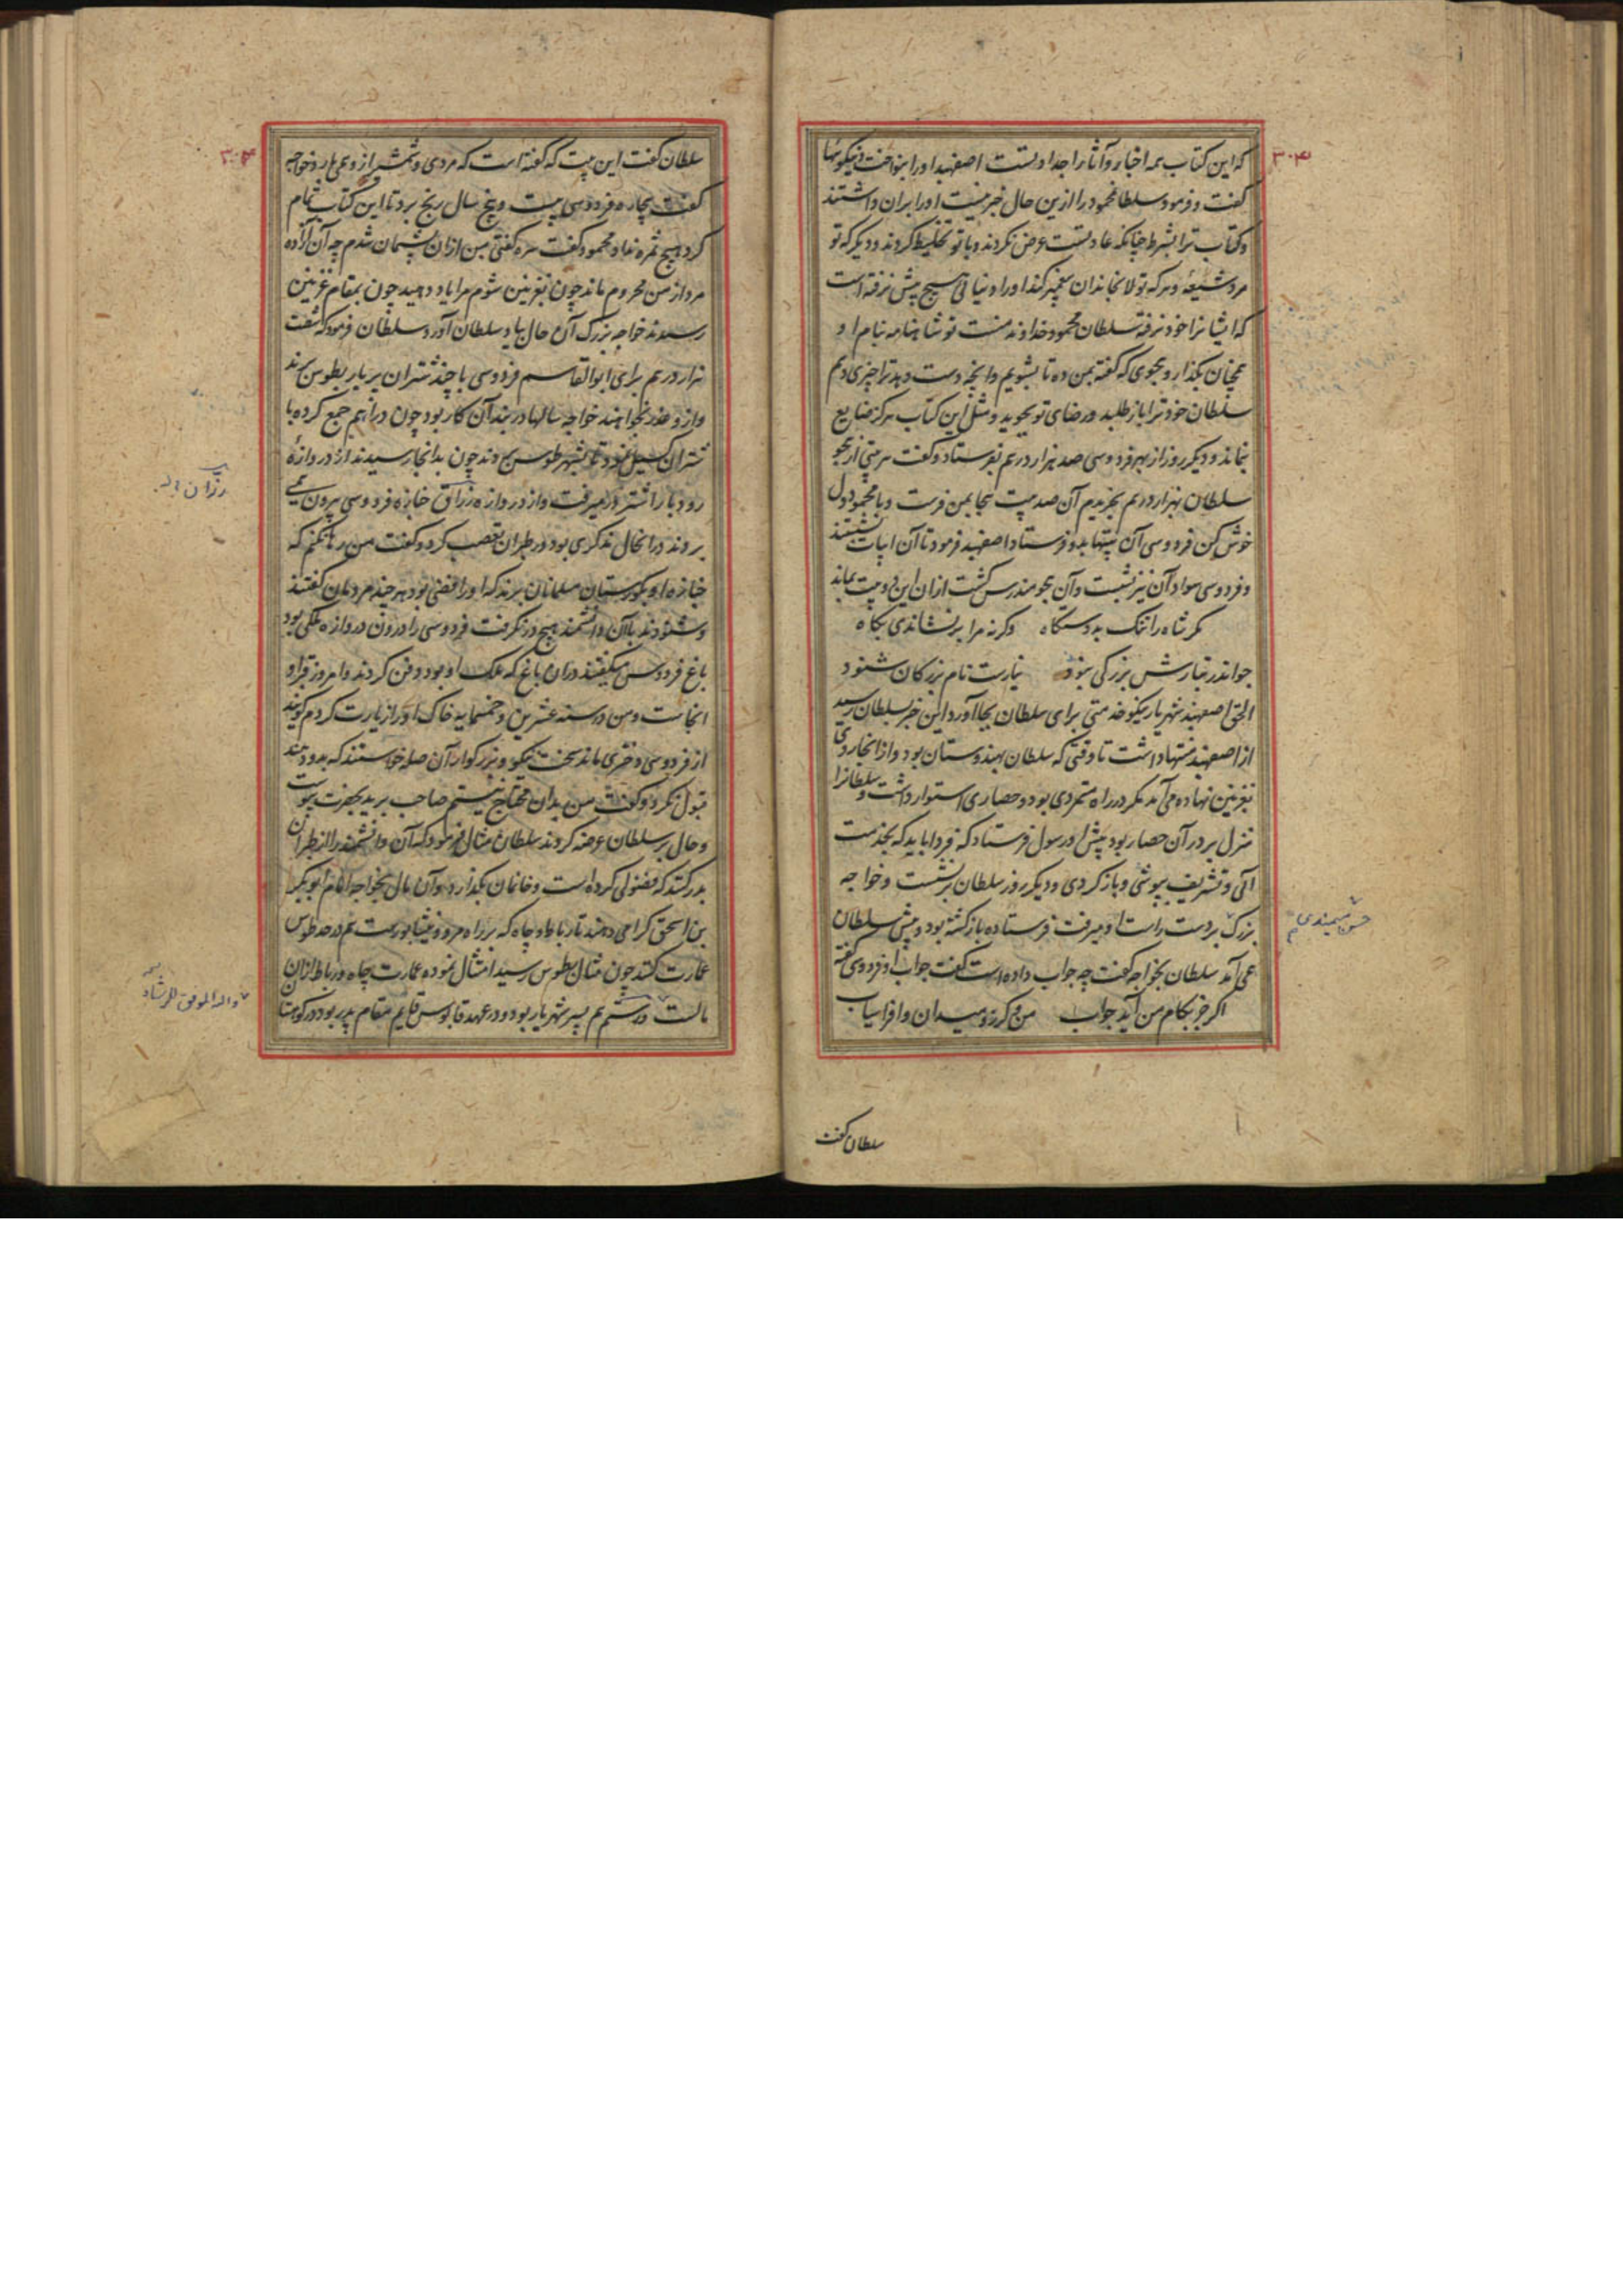 ۳۰۳
که این کتاب همه اخبار و آثار اجداد تست اصفهبد او را بنواخت و نیکوئیها
گفت و فرمود سلطان محمود را ازین حال خبر نیست او را بران داشتند
و کتاب ترا بشرط چنانکه عادتست عرض نکردند و با تو تخلیط کردند و دیگر که تو
مرد شیعهٔ و هر که تولا بخاندان پیغمبر کند او را دنیائی هیچ پیش نرفته است
که ایشانرا خود نرفته سلطان محمود خداوند منست تو شاهنامه بنام او
همچنان بگذار و هجوی که گفته بمن ده تا بشویم و آنچه دست دهد ترا چیزی دهم
سلطان خود ترا باز طلبد و رضای تو بجوید و مثل این کتاب هرگز ضایع
نماند و دیگر روز از بهر فردوسی صد هزار درم بفرستاد و گفت هر بیتی از هجو
سلطان بهزار درم بخریدم آن صد بیت بجا بمن فرست و با محمود دل
خوش کن فردوسی آن بیتها بدو فرستاد اصفهبد فرمود تا آن ابیات بشستند
و فردوسی سواد آن نیز بشست و آن هجو مندرس گشت ازان این دو بیت بماند
مگر شاه را تنگ بد دستگاه وگرنه مرا بر نشاندی بگاه
چو اندر تبارش بزرگی نبود نیارست نام بزرگان شنود
الحق اصفهبد شهریار نیکو خدمتی برای سلطان بجا آورد این خبر بسلطان رسید
از اصفهبد منتها داشت تا وقتی که سلطان بهندوستان بود و از انجا روی
بغزنین نهاده می آمد مگر در راه متمردی بود و حصاری استوار داشت و سلطانرا
منزل بر در آن حصار بود پیش او رسول فرستاد که فردا باید که بخدمت
آئی و تشریف بپوشی و باز گردی و دیگر روز سلطان بر نشست و خواجه
بزرگ بر دست راست او میرفت فرستاده باز گشته بود و پیش سلطان
می آمد سلطان بخواجه گفت چه جواب داده است گفت جواب او فردوسی گفته
اگر جز بکام من آید جواب من و گرز و میدان و افراسیاب
حسن میمندی
سلطان گفت
۳۰۴
سلطان گفت این بیت که گفته است که مردی و شمشیر ازو می بارد خواجه
گفت بیچاره فردوسی بیست و پنج سال رنج برد تا این کتاب تمام
کرد هیچ ثمره نداد محمود گفت سره گفتی من ازان پشیمان شدم چه آن آزاده
مرد از من محروم ماند چون بغزنین شوم مرا یاد دهید چون بمقام غزنین
رسیدند خواجه بزرگ آن حال بیاد سلطان آورد سلطان فرمود که شصت
هزار درهم برای ابوالقاسم فردوسی با چند شتران پر بار بطوس برند
و ازو عذر بخواهند خواجه سالها در بند آن کار بود چون دراهم جمع کرده با
شتران گسیل نمود تا بشهر طوس بروند چون بدانجا رسیدند از دروازهٔ
رودبار اشتر در میرفت و از دروازه رزاق جنازه فردوسی بیرون می
بردند در انحال مذکری بود در طبران تعصب کرد و گفت من رها نکنم که
جنازه او بگورستان مسلمانان برند که او رافضی بود هر چند مردمان گفتند
و شنودند با آن دانشمند هیچ در نگرفت فردوسی را درون دروازه ملکی بود
باغ فردوس میگفتند دران باغ که ملک او بود دفن کردند و امروز قبر او
انجاست و من در سنه عشرین و خمسمایه خاک او را زیارت کردم گویند
از فردوسی دختری ماند سخت نیکو و بزرگوار آن صله خواستند که بدو دهند
قبول نکرد و گفت من بدان محتاج نیستم صاحب برید بحضرت نبوشت
و حال بر سلطان عرضه کردند سلطان مثال فرمود که آن دانشمند را از طبران
بدر کنند که فضولی کرده است و خانمان بگذارد و آن مال بخواجه امام ابوبکر
بن اسحق کرامی دهند تا رباط و چاه که بر راه مرو و نیشابورست هم در حد طوس
عمارت کنند چون مثال بطوس رسید امتثال نموده عمارت چاه و رباط ازان
مالست و رستم هم پسر شهریار بود و در عهد قابوس قایم مقام پدر بود در کوهستا
رزان
والله الموفق للرشاد